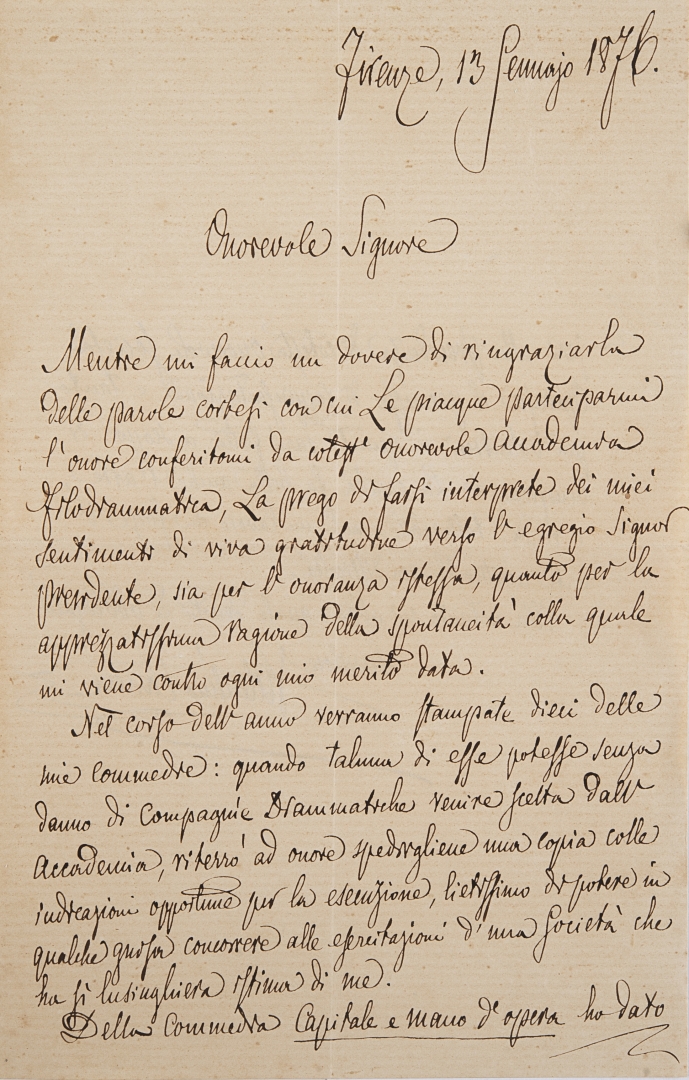 Firenze, 13 Gennajo 1876.
Onorevole Signore
Mentre mi faccio un dovere di ringraziarla
delle parole cortesi con cui Le piacque parteciparmi
l'onore conferitomi da cotest' onorevole Accademia
Filodrammatica, La prego di farsi interprete dei miei
sentimenti di viva gratitudine verso l'egregio Signor
presidente, sia per l'onoranza istessa, quanto per la
apprezzatissima ragione della spontaneità colla quale
mi viene contro ogni mio merito data.
Nel corso dell'anno verranno stampate dieci delle
mie commedie: quando taluna di esse potesse senza
danno di Compagnie Drammatiche venire scelta dall'
Accademia, riterrò ad onore spedirgliene una copia colle
indicazioni opportune per la esecuzione, lietissimo di potere in
qualche guisa concorrere alle esercitazioni d'una Società che
ha sì lusinghiera istima di me.
Della Commedia Capitale e mano d'opera ho dato